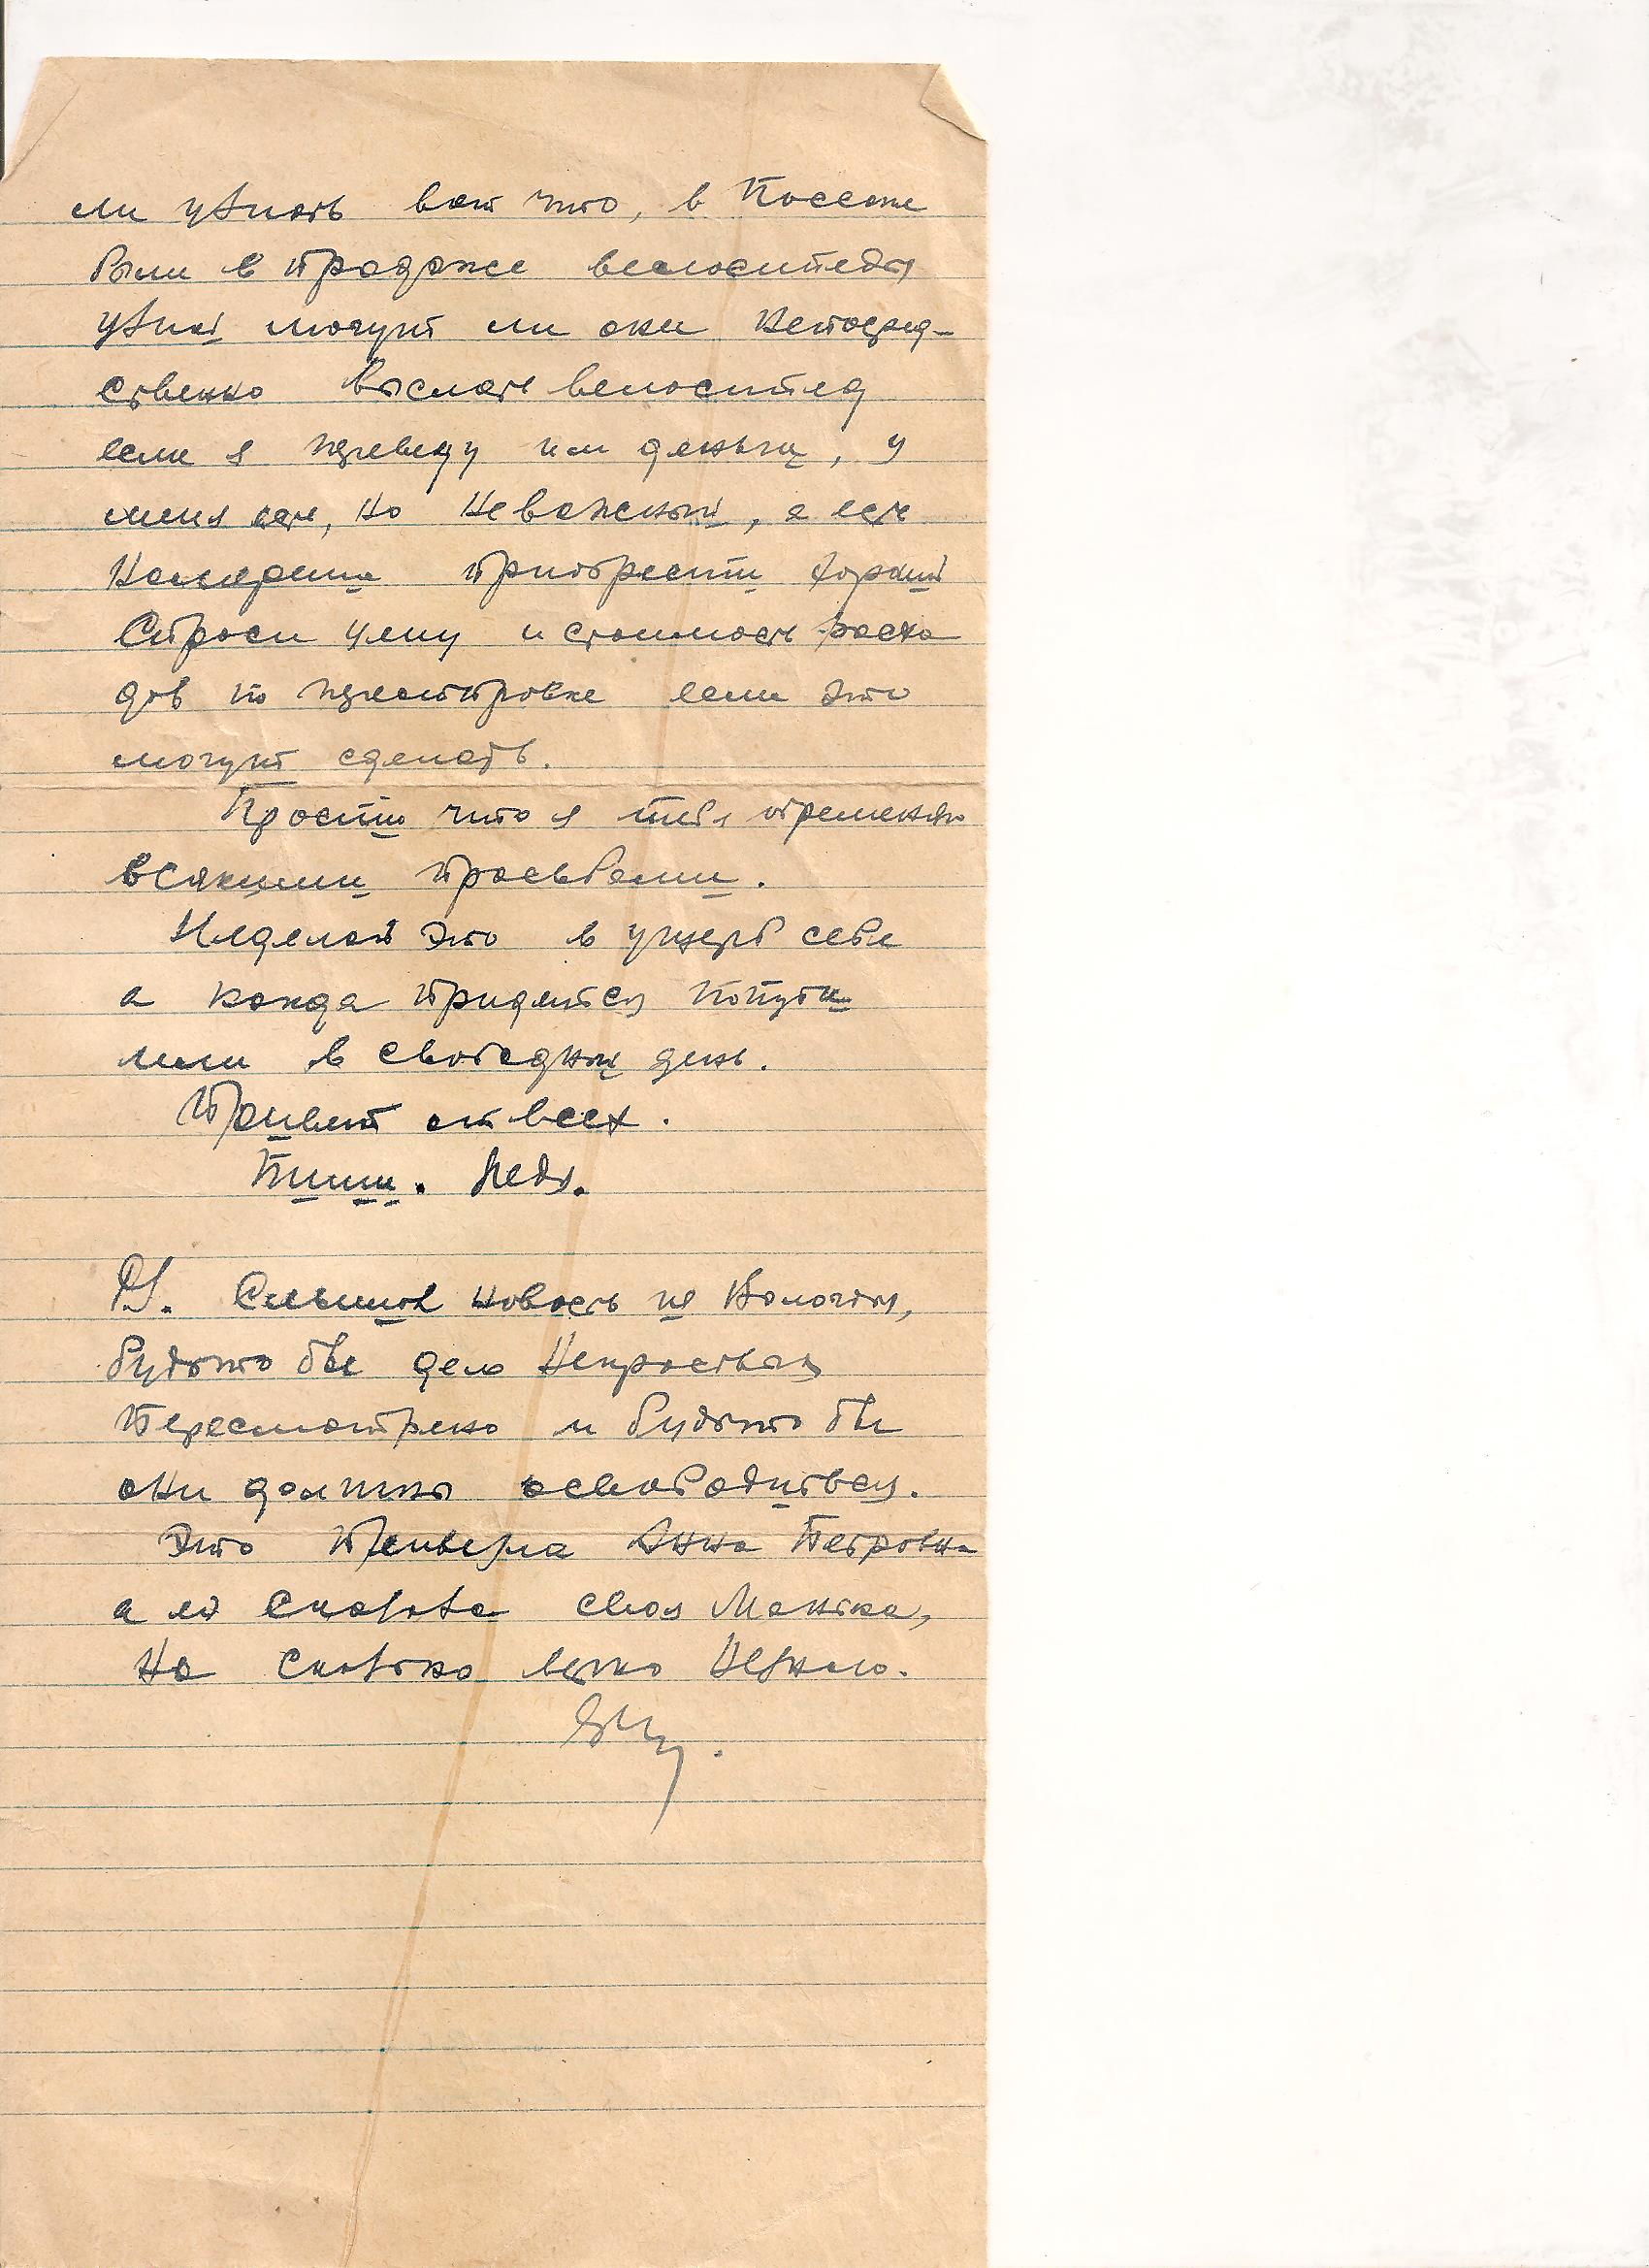 ли узнать вот что, в Пассаже
были в продаже велосипеды
узнай могут ли они непосред-
ственно выслать велосипед
если я переведу им деньги, у
меня есть, но неважный, а есть
намерение приобрести хорший
Спроси цену и стоимость расхо
дов по пересыпровке если это
могут сделать.
Прости что я тебя обременяю
всякими просьбами.
Неделай это в ущерб себе
а когда придется попути
или в свободный день.
Привет от всех.
Пиши. Федя.
PS. Слышал новость из Вологды,
будьто бы дело
Пересмотрено и будьто бы
они должны освободиться.
Это Анна Петровна
а ей сказала своя Манька,
На сколько верно незнаю.